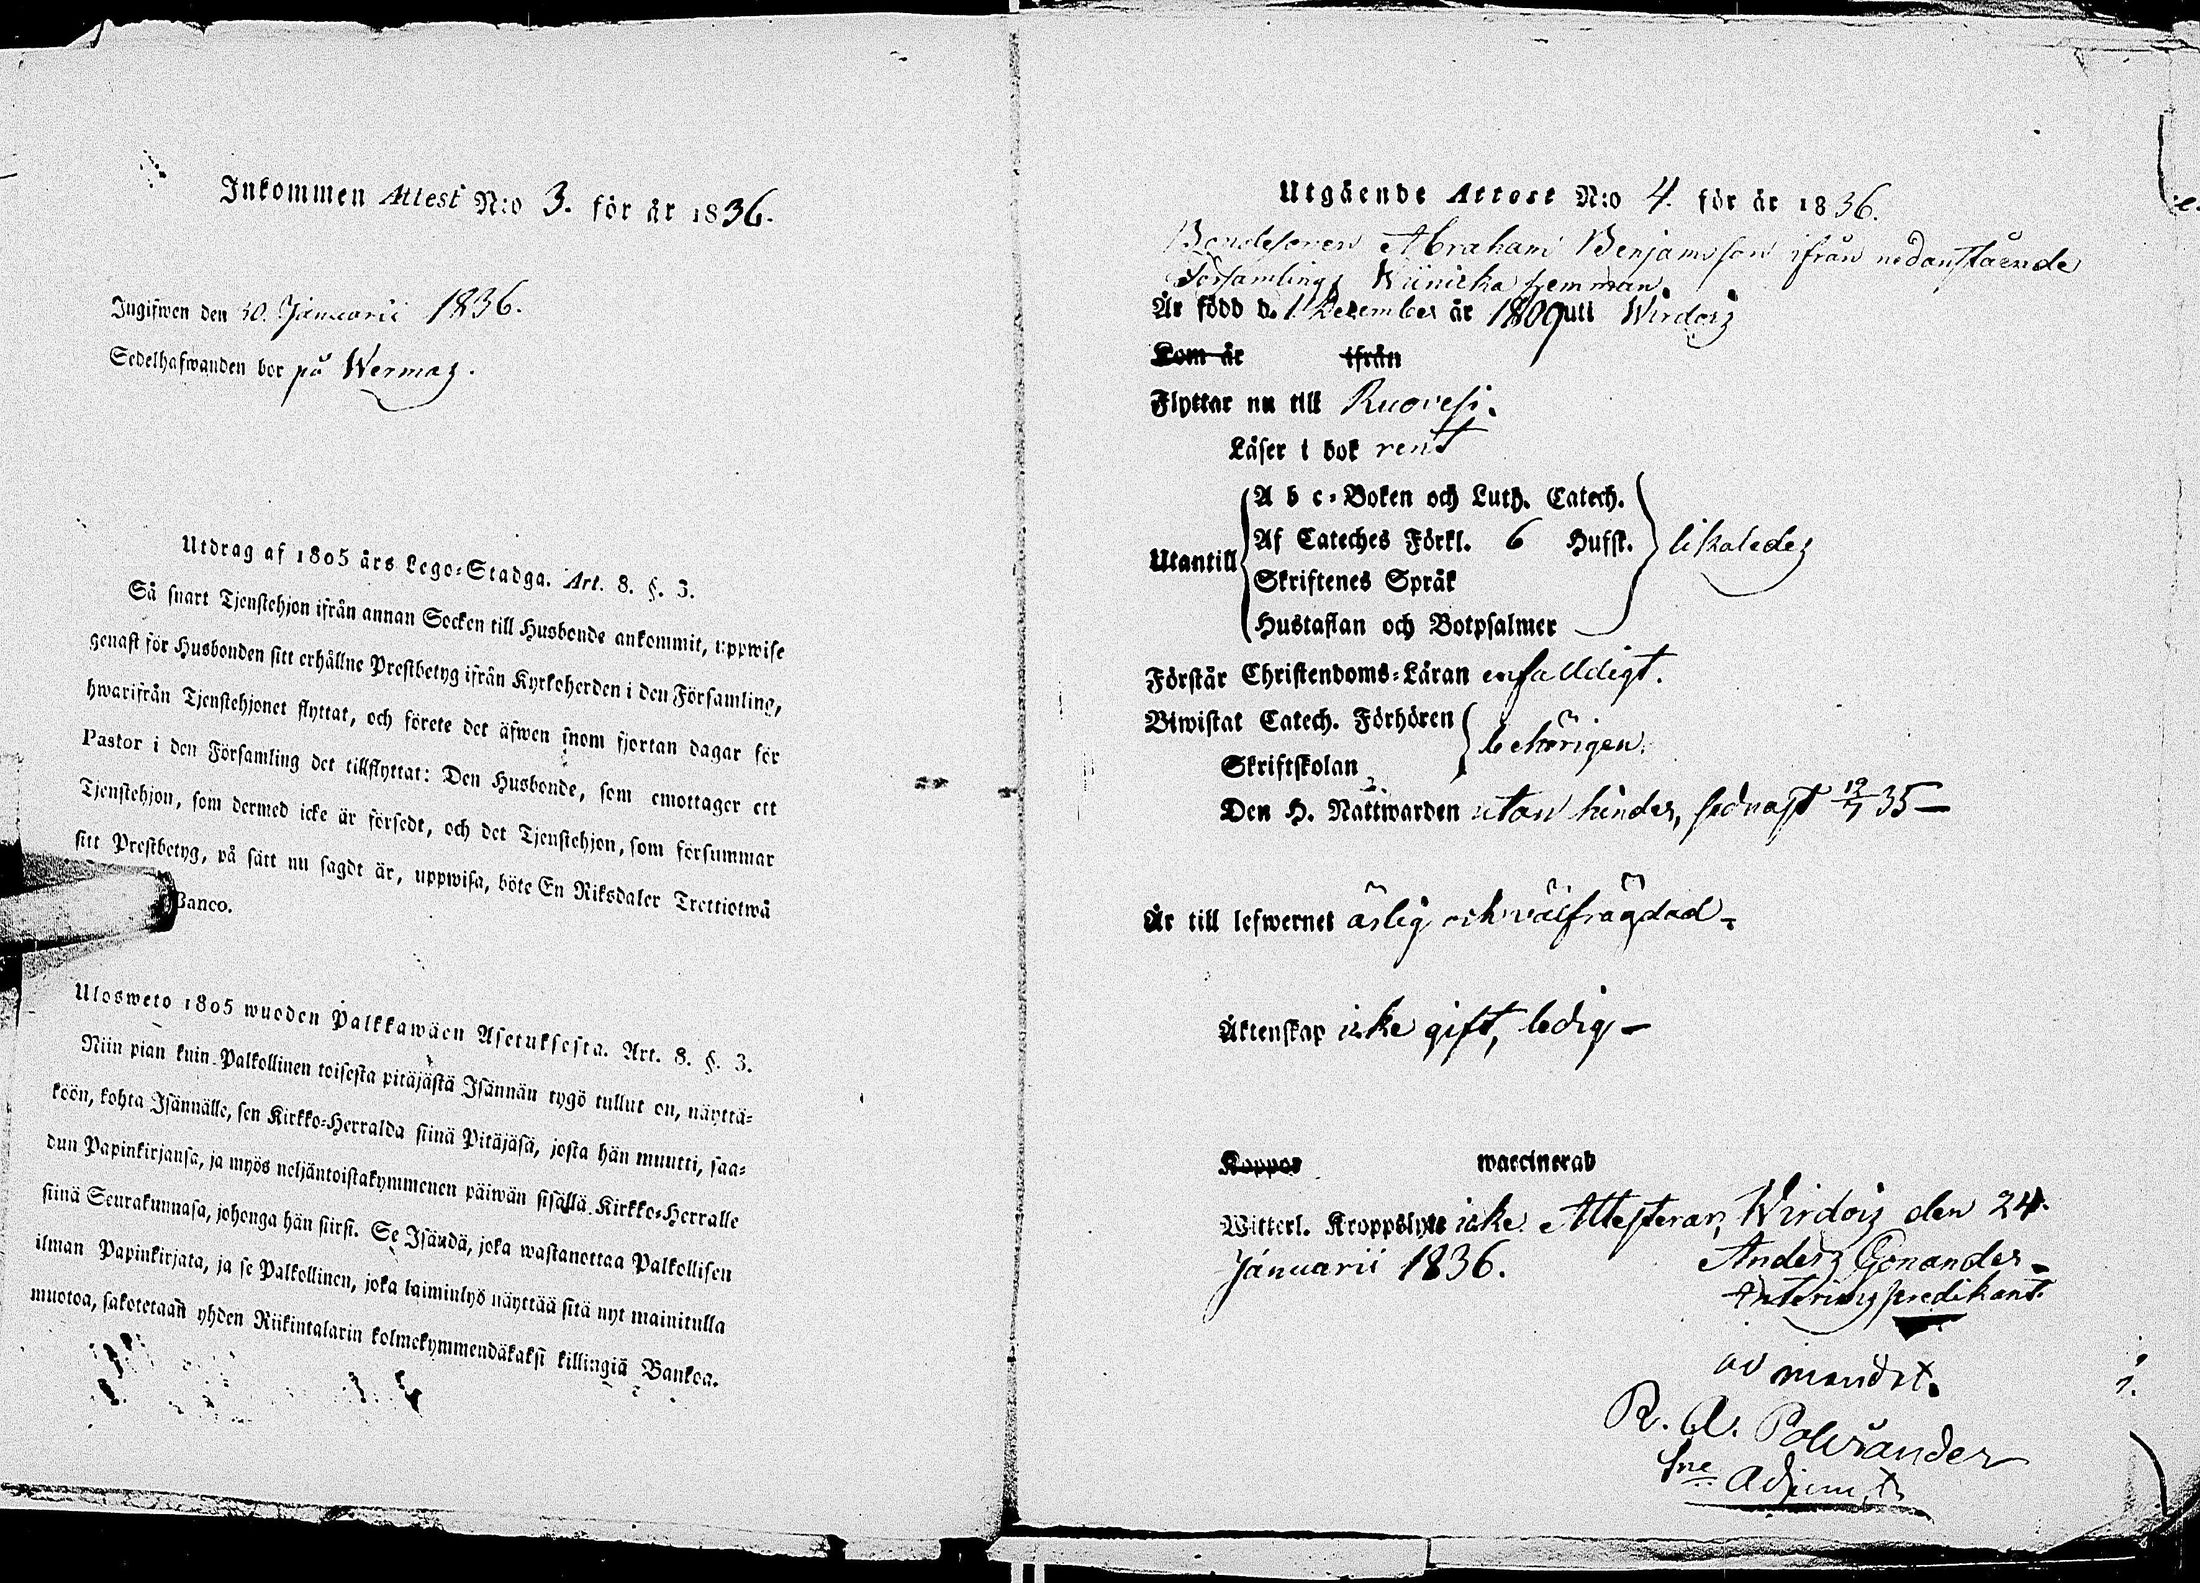 Inkommen Attest N:o 3. för år 1836.
Ingifwen den 30. Januarii 1836.
Sedelhafwanden bor på Wermas.
Utdrag af 1805 års Lego-Stadga. Art. 8. §. 3.
Så snart Tjenstehjon ifrån annan Socken till Husbonde ankommit, uppwise
genast för Husbonden sitt erhållne Prestbetyg ifrån Kyrkoherden i den Församling,
hwarifrån Tjenstehjonet flyttat, och förete det äfwen inom fjortan dagar för
Pastor i den Församling det tillflyttat: Den Husbonde, som emottager ett
Tjenstehjon, som dermed icke är försedt, och det Tjenstehjon, som försummar
sitt Prestbetyg, på sätt nu sagdt är, uppwisa, böte En Riksdaler Trettiotwå
Banco.
Ulosweto 1805 wuoden Palkkawäen Asetuksesta. Art. 8. §. 3.
Niin pian kuin Palkollinen toisesta pitäjästä Isännän tygö tullut on, näyttä-
köön, kohta Isännälle, sen Kirkko-Herralda siinä Pitäjäsä, josta hän muutti, saa-
dun Papinkirjansa, ja myös neljäntoistakymmenen päiwän sisällä Kirkko-Herralle
siinä Seurakunnasa, johonga hän siirsi. Se Isändä, joka wastanottaa Palkollisen
ilman Papinkirjata, ja se Palkollinen, joka laiminlyö näyttää sitä nyt mainitulla
muotoa, sakotetaan yhden Riikintalarin kolmekymmendäkaksi killingiä Bankoa.
Utgående Attest N:o 4. för år 1836.
Bondesonen Abraham Benjamsson ifrån nedanstående
Församlings Wiinicka hemman.
Är född d. 1 December år 1809 uti Wirdois
Kom år ifrån
Flyttar nu till Ruovesi.
Läser i bok rent
Utantill
A b c-Boken och Luth. Catech.
Af Cateches Förkl. 6 Hufst. likaledes
Skriftenes Språk
Hustaflan och Botpsalmer
Förstår Christendoms-Läran enfalldigt.
Biwistat Catech. Förhören
behörigen.
Skriftskolan
Den H. Nattwarden utan hinder, sednast 12/7 35
Är till lefwernet ärlig och välfrägdad
Äktenskap icke gift, ledig
Koppor waccinerad
Witterl. Kroppslyte icke. Attesterar, Wirdois den 24.
Januarii 1836. Anders Gonander
Interims predikant.
ad mandat.
R. A. Polviander
Adjunct